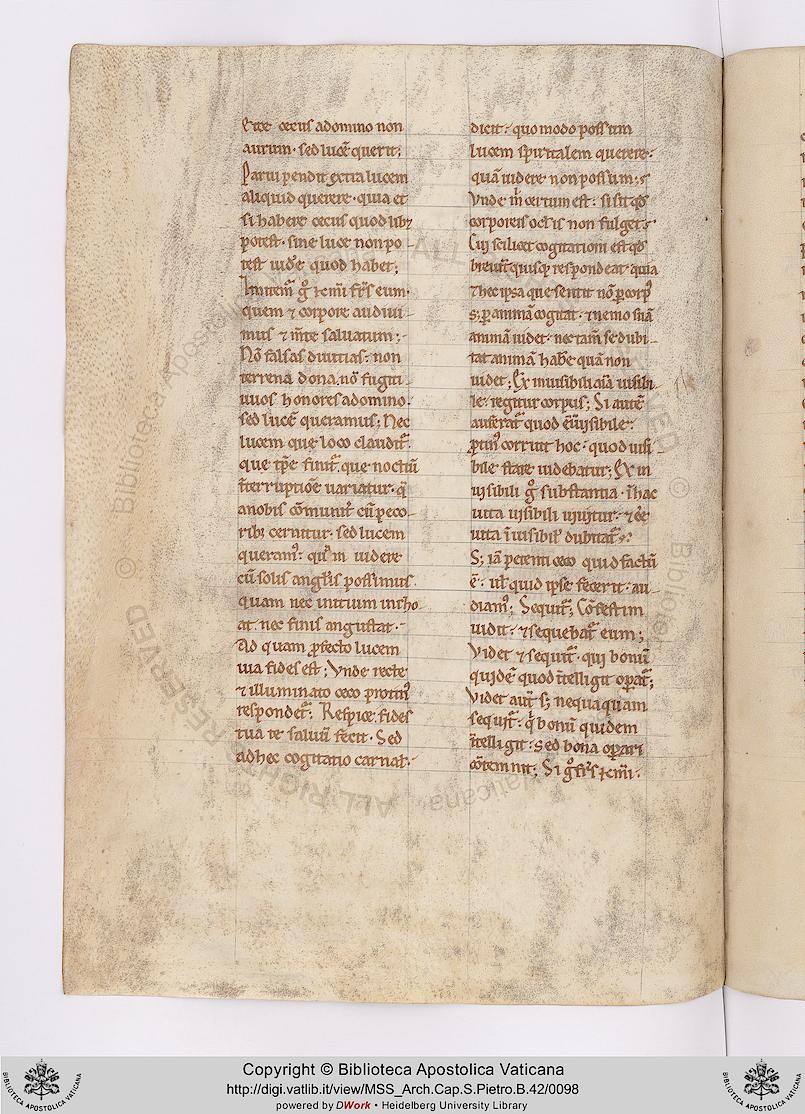 Ecce cecus a domino non
aurum· sed lucē querit;
Parui pendit extra lucem
aliquid querere· quia et
si habere cecus quod libꝫ
potest· sine luce non po
test uidē quod habet;
Imitem̄ g̊ kc̄mi fr̄s eum·
quem ⁊ corpore audiui
mus ⁊ m̄te saluatum;
Nō falsas diuitias· non
terrena dona· nō fugiti
uuos honores a domino·
sed lucē queramus; Nec
lucem que loco claudit᷑·
que tp̄e finit᷑· que noctiū
īterruptiōe uariatur· q̄
a nobis cōmunit᷑ cū peco
ribꝫ cernitur· sed lucem
queram᷒· quā uidere
cū solis angl̄is possimus
quam nec initium incho
at· nec finis angustat·
Ad quam ꝓfecto lucem
uia fides est; Vnde recte
⁊ illuminato ceco protin᷒
respondet᷑; Respice· fides
tua te saluū fecit· Sed
ad hec cogitatio carnal·
dicit· quomodo possum
lucem spiritalem querere·
quā uidere non possum;
Vnde m̄ certum est· si sit qđ
corporeis oclis non fulget;
Cui scilicet cogitationi est qđ
breuit᷑ quisqꝫ respondeat· quia
⁊ hec ipsa que sentit nō ꝑ corp᷒
s; ꝑ animā cogitat· ⁊ nemo suā
animā uidet· nec tam̄ se dubi
tat animā habe᷑ quā non
uidet; Ex inuisibili aīa uisibi
le· regitur corpus; Si autē
auferat᷑ quod ē īuisibile·
ꝓtin᷒ corruit hoc· quod uisi
bile stare uidebatur; Ex in
uisibili g̊ substantia· ī hac
uita uisibili uiuitur· ⁊ ēē
uita īuisibil᷑ dubitat᷑;
S; iā petenti ceco quid factū
ē· ut̄ quid ipse fecerit· au
diam᷒; Sequit᷑; Cōfestim
uidit· ⁊ sequebat᷑ eum;
Videt ⁊ sequit᷑· qui bonū
quidē quod ītelligit operat᷑;
Videt aut̄ s; nequaquam
sequit᷑· q̄ bonū quidem
ītelligit· sed bona operari
cōtemnit; Si g̊ fr̄s kc̄mi·
Biblioteca Apostolica Vaticana
ALL RIGHTS RESERVED
©
Copyright © Biblioteca Apostolica Vaticana
http://digi.vatlib.it/view/MSS_Arch.Cap.S.Pietro.B.42/0098
powered by DWork • Heidelberg University Library
BIBLIOTECA APOSTOLICA VATICANA
BIBLIOTECA APOSTOLICA VATICANA